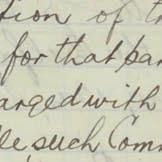 tion of t
for that par
arged with
le such Com